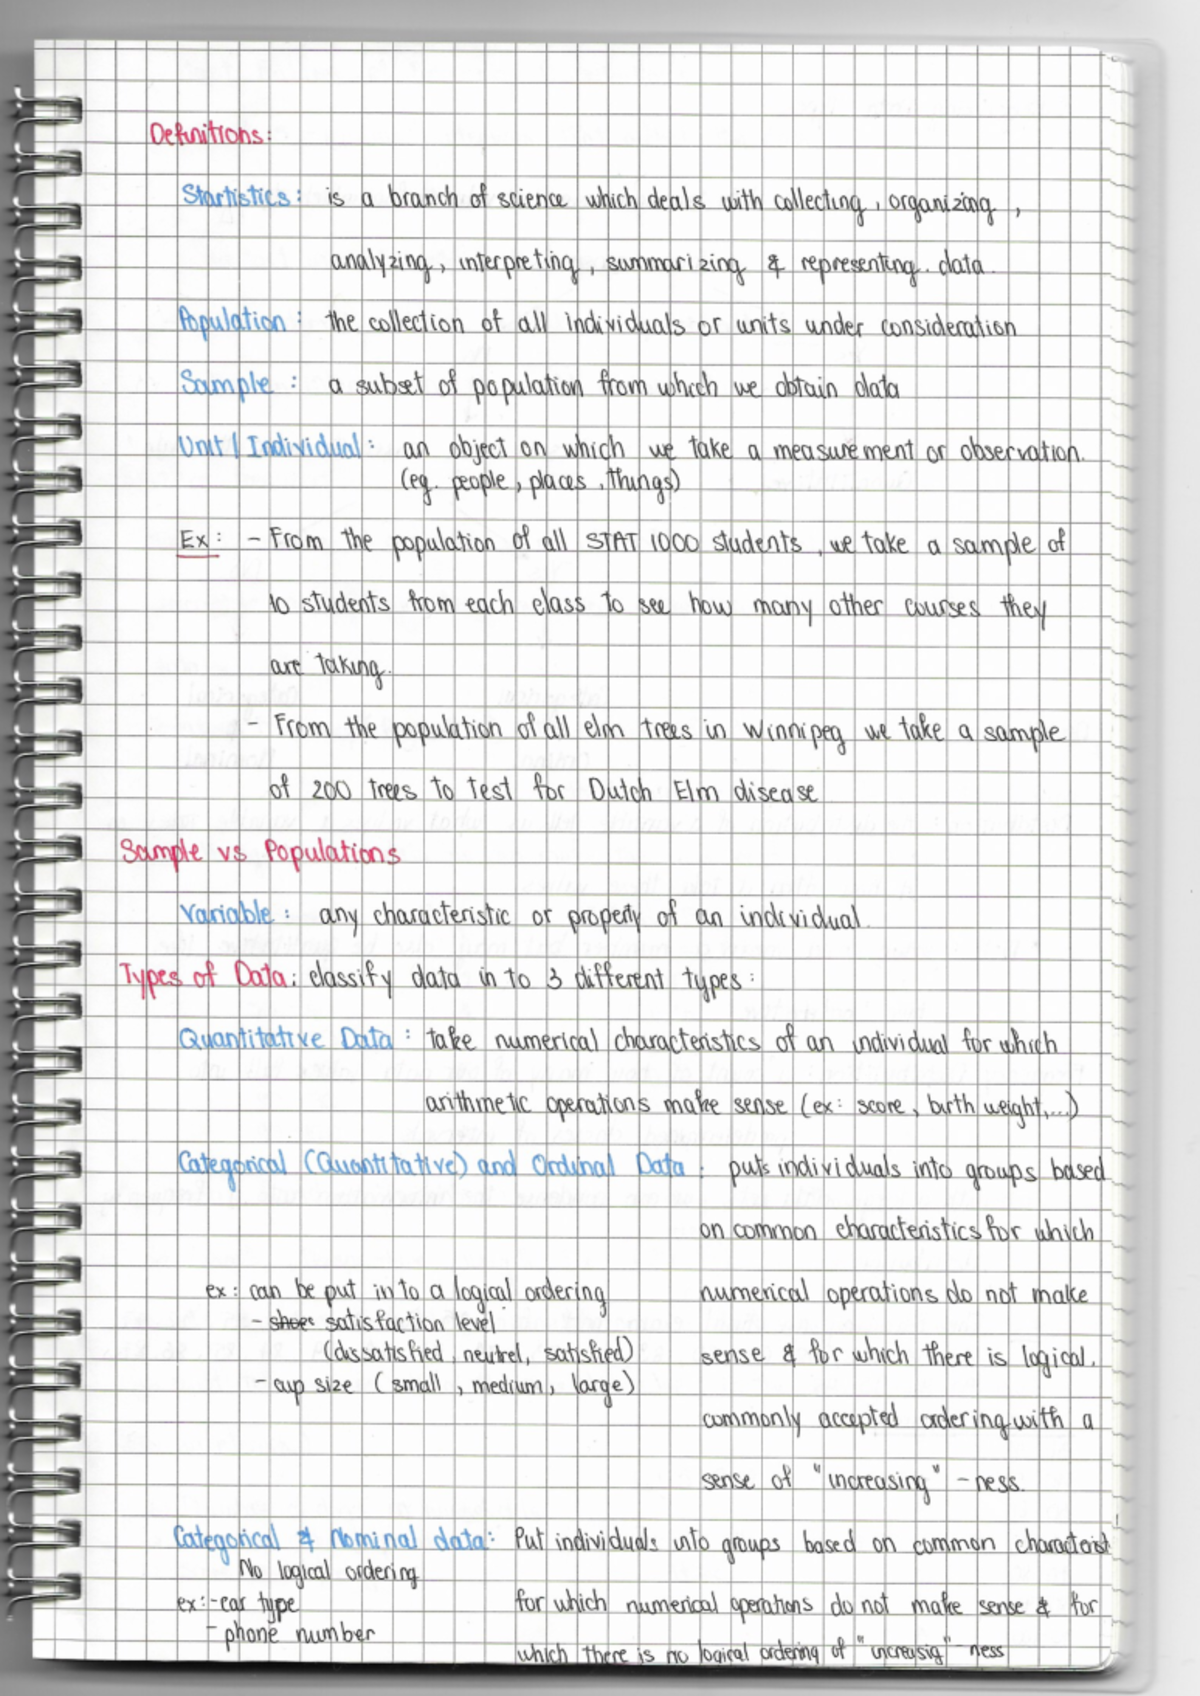 Definitions:
Startistics: is a branch of science which deals with collecting, organizing,
analyzing, interpreting, summarizing & representing. data.
Population: the collection of all individuals or units under consideration
Sample: a subset of population from which we obtain data
Unit / Individual: an object on which we take a measurement or observation.
(eg. people, places, things)
Ex: - From the population of all STAT 1000 students, we take a sample of
10 students from each class to see how many other courses they
are taking.
- From the population of all elm trees in Winnipeg we take a sample
of 200 trees to test for Dutch Elm disease
Sample vs Populations
Variable: any characteristic or property of an individual.
Types of Data: classify data in to 3 different types:
Quantitative Data: take numerical characteristics of an individual for which
arithmetic operations make sense (ex: score, birth weight,...)
Categorical (Quantitative) and Ordinal Data: puts individuals into groups based
on common characteristics for which
ex: can be put in to a logical ordering
numerical operations do not make
- shoes satisfaction level
(dissatisfied, neutrel, satisfied)
sense & for which there is logical,
- cup size (small, medium, large)
commonly accepted ordering with a
sense of "increasing" -ness.
Categorical & Nominal data: Put individuals into groups based on common characterist
No logical ordering
ex: - car type
for which numerical operations do not make sense & for
- phone number
which there is no logical ordering of "increasig" -ness